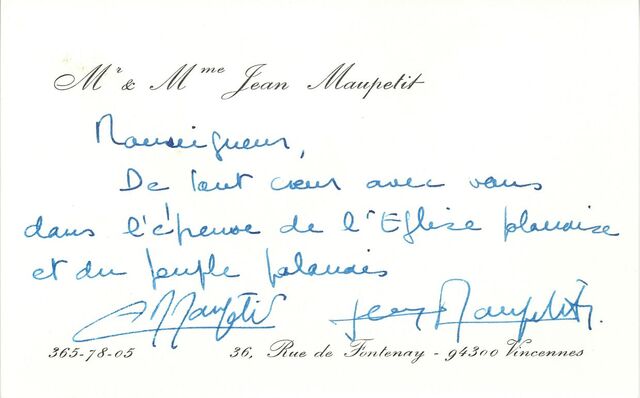 Mr & Mme Jean Maupetit
Monseigneur,
De tout cœur avec vous
dans l'épreuve de l'Eglise polonaise
et du peuple polonais
Maupetit Jean Maupetit.
365-78-05 36, Rue de Fontenay - 94300 Vincennes